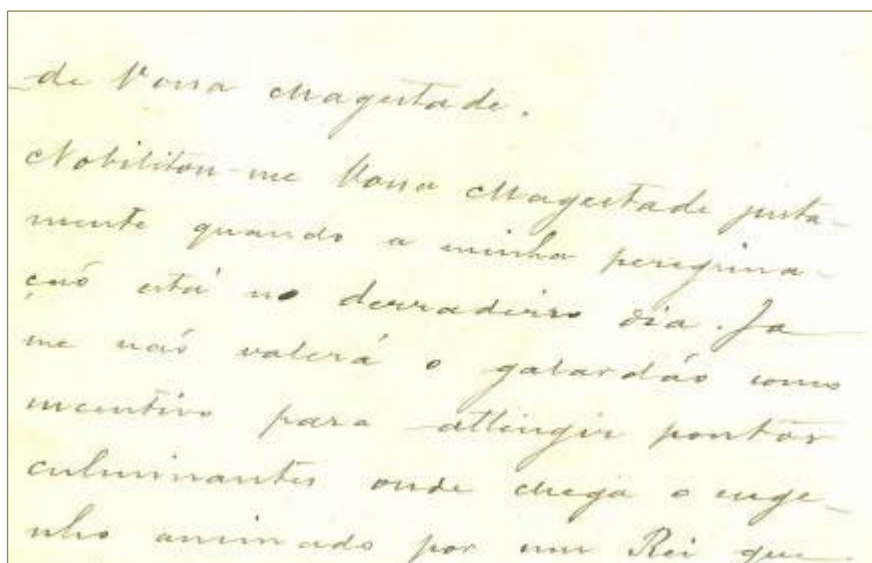 de Vossa Magestade.
Nobilitou-me Vossa Magestade justa-
mente quando a minha peregrina-
çaõ está no derradeiro dia. Ja
me naõ valerá o galardão como
incentivo para attingir pontos
culminantes onde chega o enge-
nho animado por um Rei que